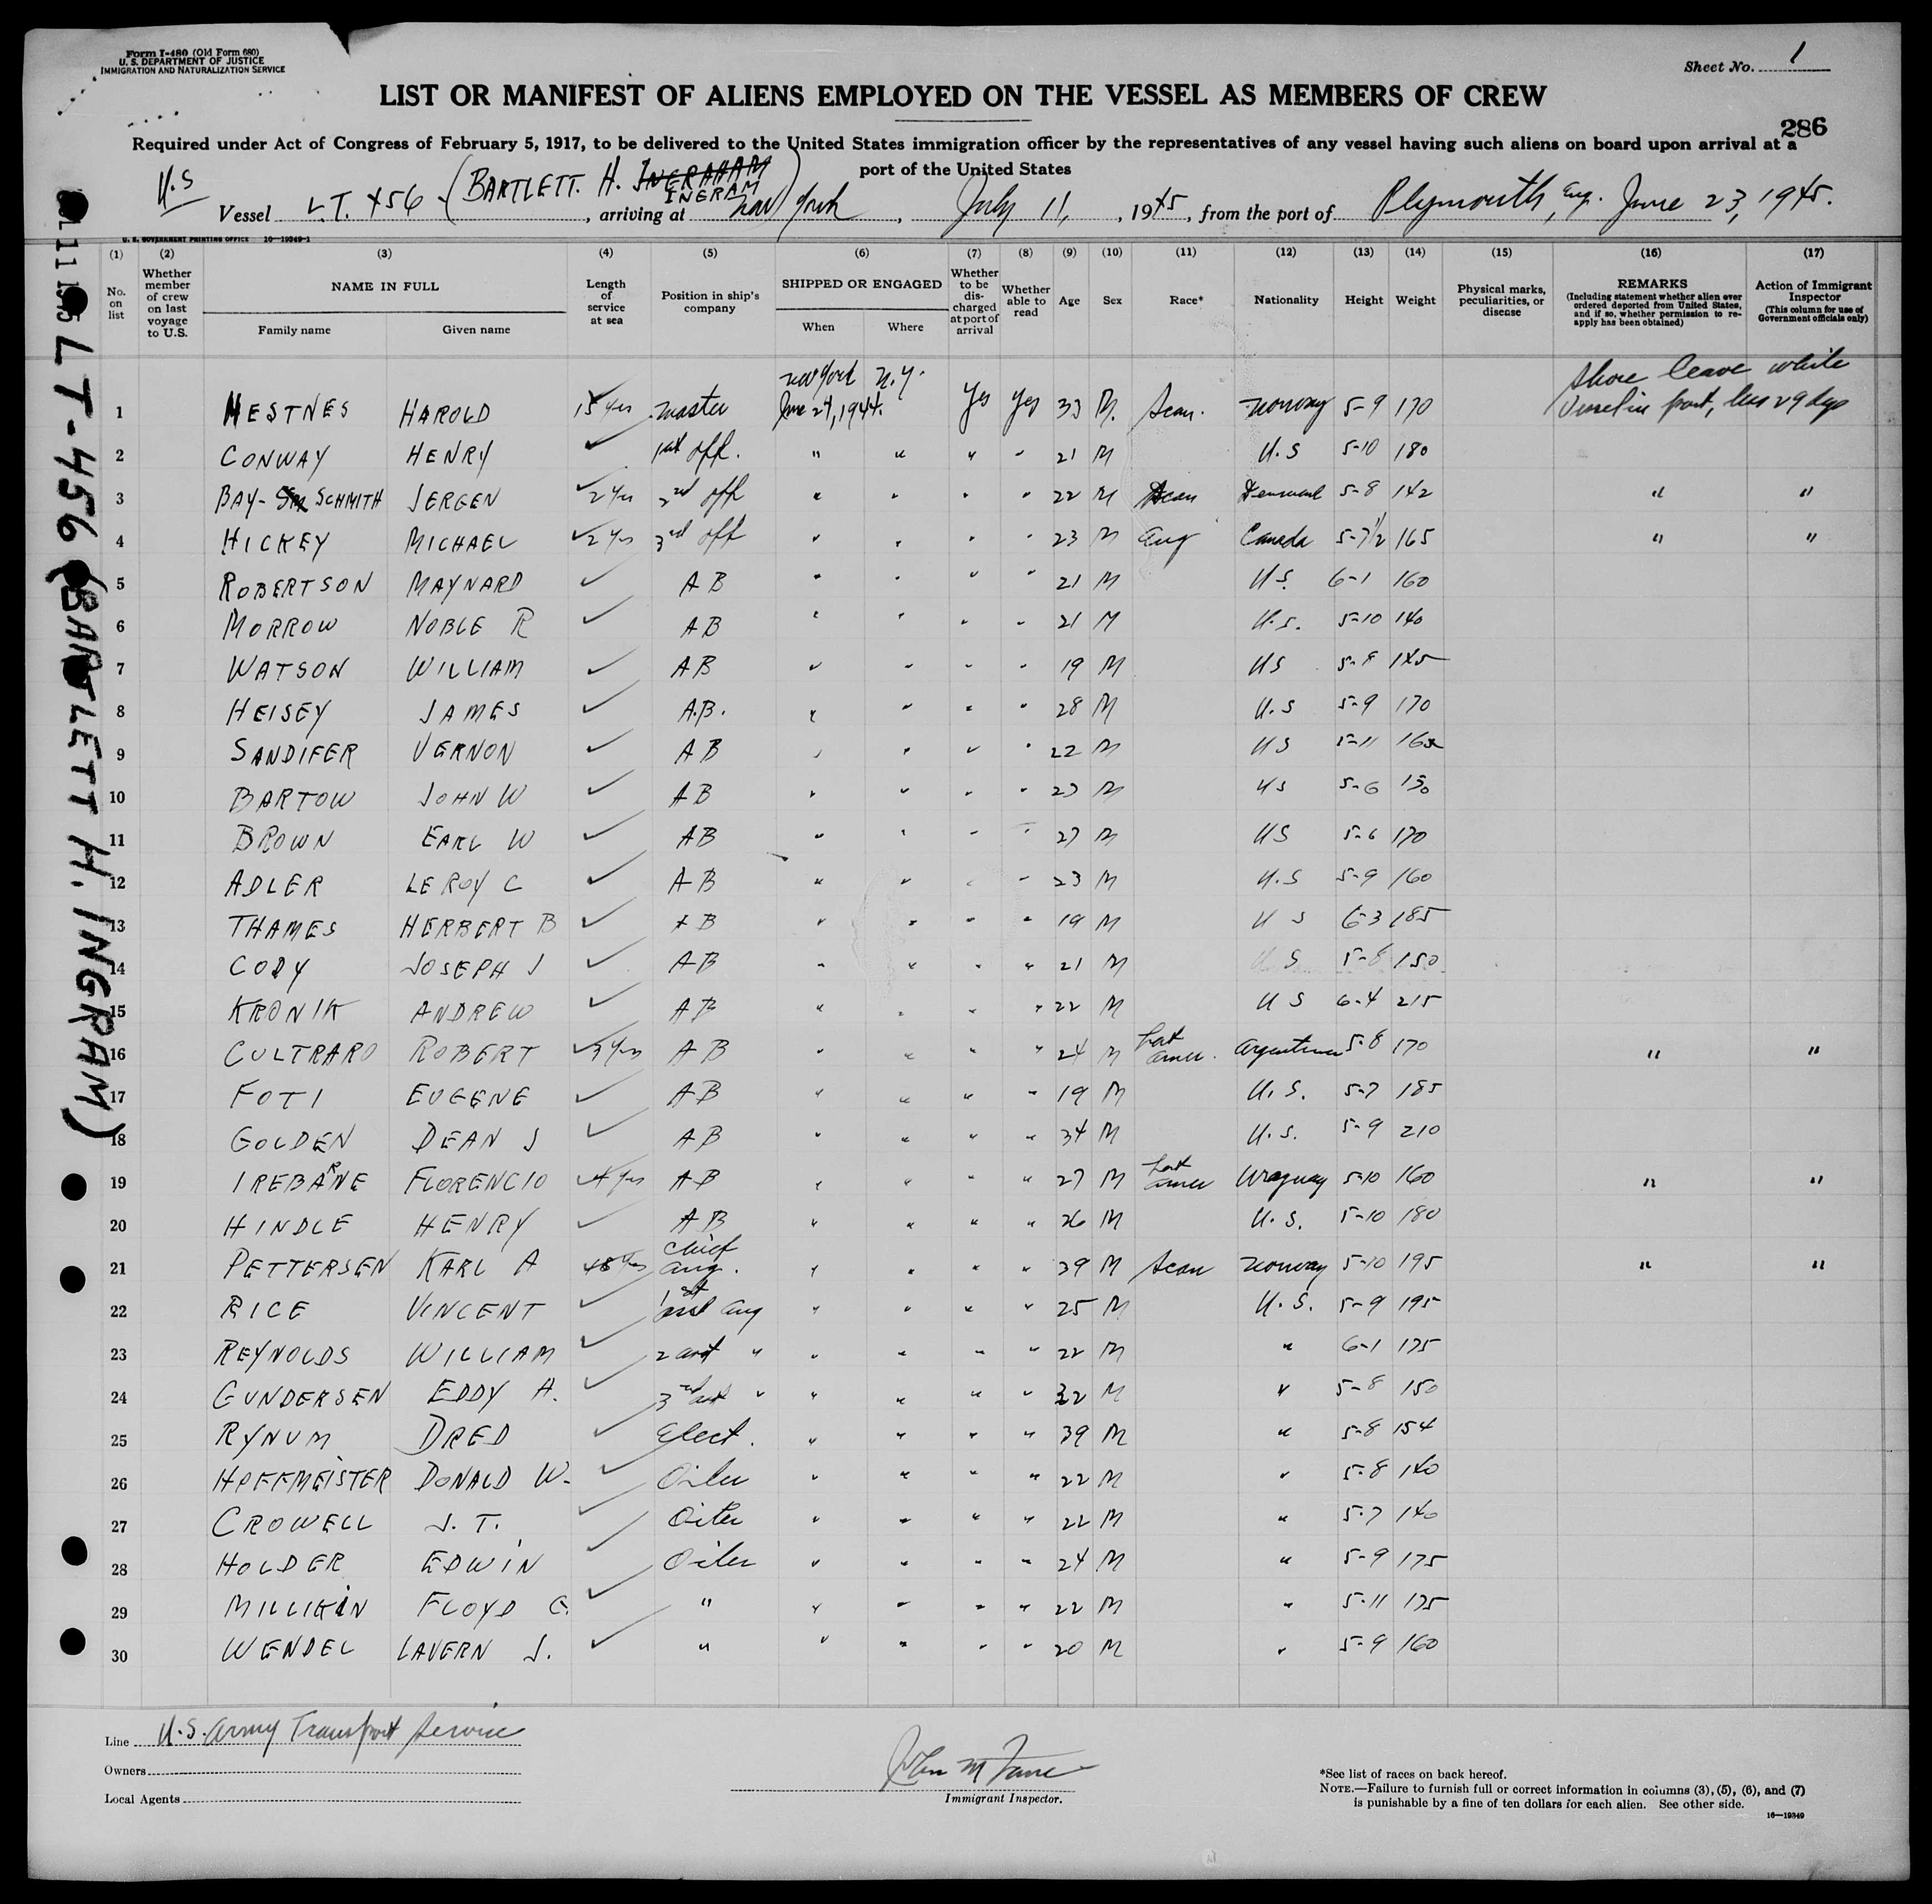 Form I-480 (Old Form 680)
U. S. DEPARTMENT OF JUSTICE
IMMIGRATION AND NATURALIZATION SERVICE
Sheet No. 1
LIST OR MANIFEST OF ALIENS EMPLOYED ON THE VESSEL AS MEMBERS OF CREW
286
Required under Act of Congress of February 5, 1917, to be delivered to the United States immigration officer by the representatives of any vessel having such aliens on board upon arrival at a
port of the United States
U.S
Vessel L.T. 456 (BARTLETT. H. INGRAHAM INGRAM), arriving at New York, July 11, 1945, from the port of Plymouth, Eng. June 23, 1945.
U. S. GOVERNMENT PRINTING OFFICE 16—19349-1
(1) (2) (3) (4) (5) (6) (7) (8) (9) (10) (11) (12) (13) (14) (15) (16) (17)
No. on list
Whether member of crew on last voyage to U.S.
NAME IN FULL
Family name
Given name
Length of service at sea
Position in ship's company
SHIPPED OR ENGAGED
When
Where
Whether to be discharged at port of arrival
Whether able to read
Age
Sex
Race*
Nationality
Height
Weight
Physical marks, peculiarities, or disease
REMARKS
(Including statement whether alien ever ordered deported from United States, and if so, whether permission to reapply has been obtained)
Action of Immigrant Inspector
(This column for use of Government officials only)
New York N.Y. shore leave while
1 HESTNES HAROLD 15 yrs master June 27, 1944. Yes Yes 33 M. Scan. Norway 5-9 170 Vessel in port, less 29 dys
2 CONWAY HENRY ✓ 1st off. " " " " 21 M U.S 5-10 180
3 BAY- SCHMITH JERGEN ✓2 yrs 2nd off " " " " 22 M Scan Denmark 5-8 142 " "
4 HICKEY MICHAEL ✓2 yrs 3rd off " " " " 23 M Eng Canada 5-7½ 165 " "
5 ROBERTSON MAYNARD ✓ A B " " " " 21 M U.S. 6-1 160
6 MORROW NOBLE R ✓ A B " " " " 21 M U.S. 5-10 140
7 WATSON WILLIAM ✓ A B " " " " 19 M US 5-8 145
8 HEISEY JAMES ✓ A.B. " " " " 28 M U.S 5-9 170
9 SANDIFER VERNON ✓ A B " " " " 22 M US 5-11
10 BARTOW JOHN W ✓ A B " " " " 23 M US 5-6 130
11 BROWN EARL W ✓ A B " " " " 27 M US 5-6 170
12 ADLER LEROY C ✓ A B " " " " 23 M U.S 5-9 160
13 THAMES HERBERT B ✓ A B " " " " 19 M U S 6-3 185
14 CODY JOSEPH J ✓ A B " " " " 21 M U S 5-8 150
15 KRONIK ANDREW ✓ A B " " " " 22 M U S 6-4 215
16 CULTRARO ROBERT ✓3 yrs A B " " " " 24 M Lat Amer. Argentina 5-8 170 " "
17 FOTI EUGENE ✓ A B " " " " 19 M U.S. 5-7 185
18 GOLDEN DEAN J ✓ A B " " " " 34 M U.S. 5-9 210
19 IREBARNE FLORENCIO ✓4 yrs A B " " " " 27 M Lat Amer Uruguay 5-10 160 " "
20 HINDLE HENRY ✓ A B " " " " 26 M U.S. 5-10 180
21 PETTERSEN KARL A yrs Chief Eng. " " " " 39 M Scan Norway 5-10 195 " "
22 RICE VINCENT ✓ 1st asst Eng " " " " 25 M U.S. 5-9 195
23 REYNOLDS WILLIAM ✓ 2 asst " " " " " 22 M " 6-1 175
24 GUNDERSEN EDDY A. ✓ 3rd asst " " " " " 32 M " 5-8 150
25 RYNUM DRED ✓ Elect. " " " " 39 M " 5-8 154
26 HOFFMEISTER DONALD W. ✓ Oiler " " " " 22 M " 5-8 140
27 CROWELL J. T. ✓ Oiler " " " " 22 M " 5-7 140
28 HOLDER EDWIN ✓ Oiler " " " " 24 M " 5-9 175
29 MILLIKIN FLOYD G. ✓ " " " " " 22 M " 5-11 175
30 WENDEL LAVERN J. ✓ " " " " " 20 M " 5-9 160
Line U.S. Army Transport Service
Owners
Local Agents
John M
Immigrant Inspector.
*See list of races on back hereof.
NOTE.—Failure to furnish full or correct information in columns (3), (5), (6), and (7)
is punishable by a fine of ten dollars for each alien. See other side.
16—19349
LT-456 (BARTLETT H. INGRAM)